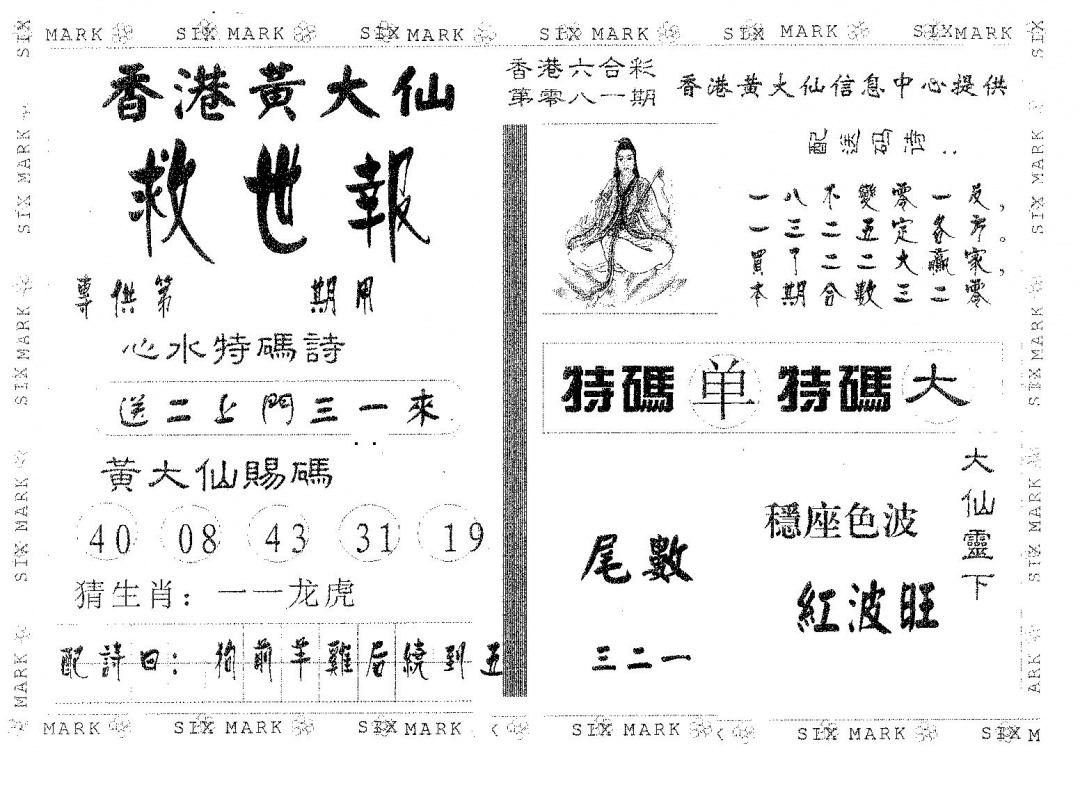 SIX MARK SIX MARK SIX MARK SIX MARK SIX MARK SIX MARK
香港黃大仙
救世報
專供第 期用
心水特碼詩
送二上門三一來
黃大仙賜碼
40 08 43 31 19
猜生肖：一一龙虎
配詩曰：狗前羊雞后繞到五
香港六合彩
第零八一期
香港黄大仙信息中心提供
配送码诗..
一八不變零一反，
一三二五定各方。
買了二二大贏家，
本期合数三二零
特碼单 特碼大
大仙靈下
穩座色波
紅波旺
尾數
三二一
MARK SIX MARK SIX MARK SIX MARK SIX MARK SIX M